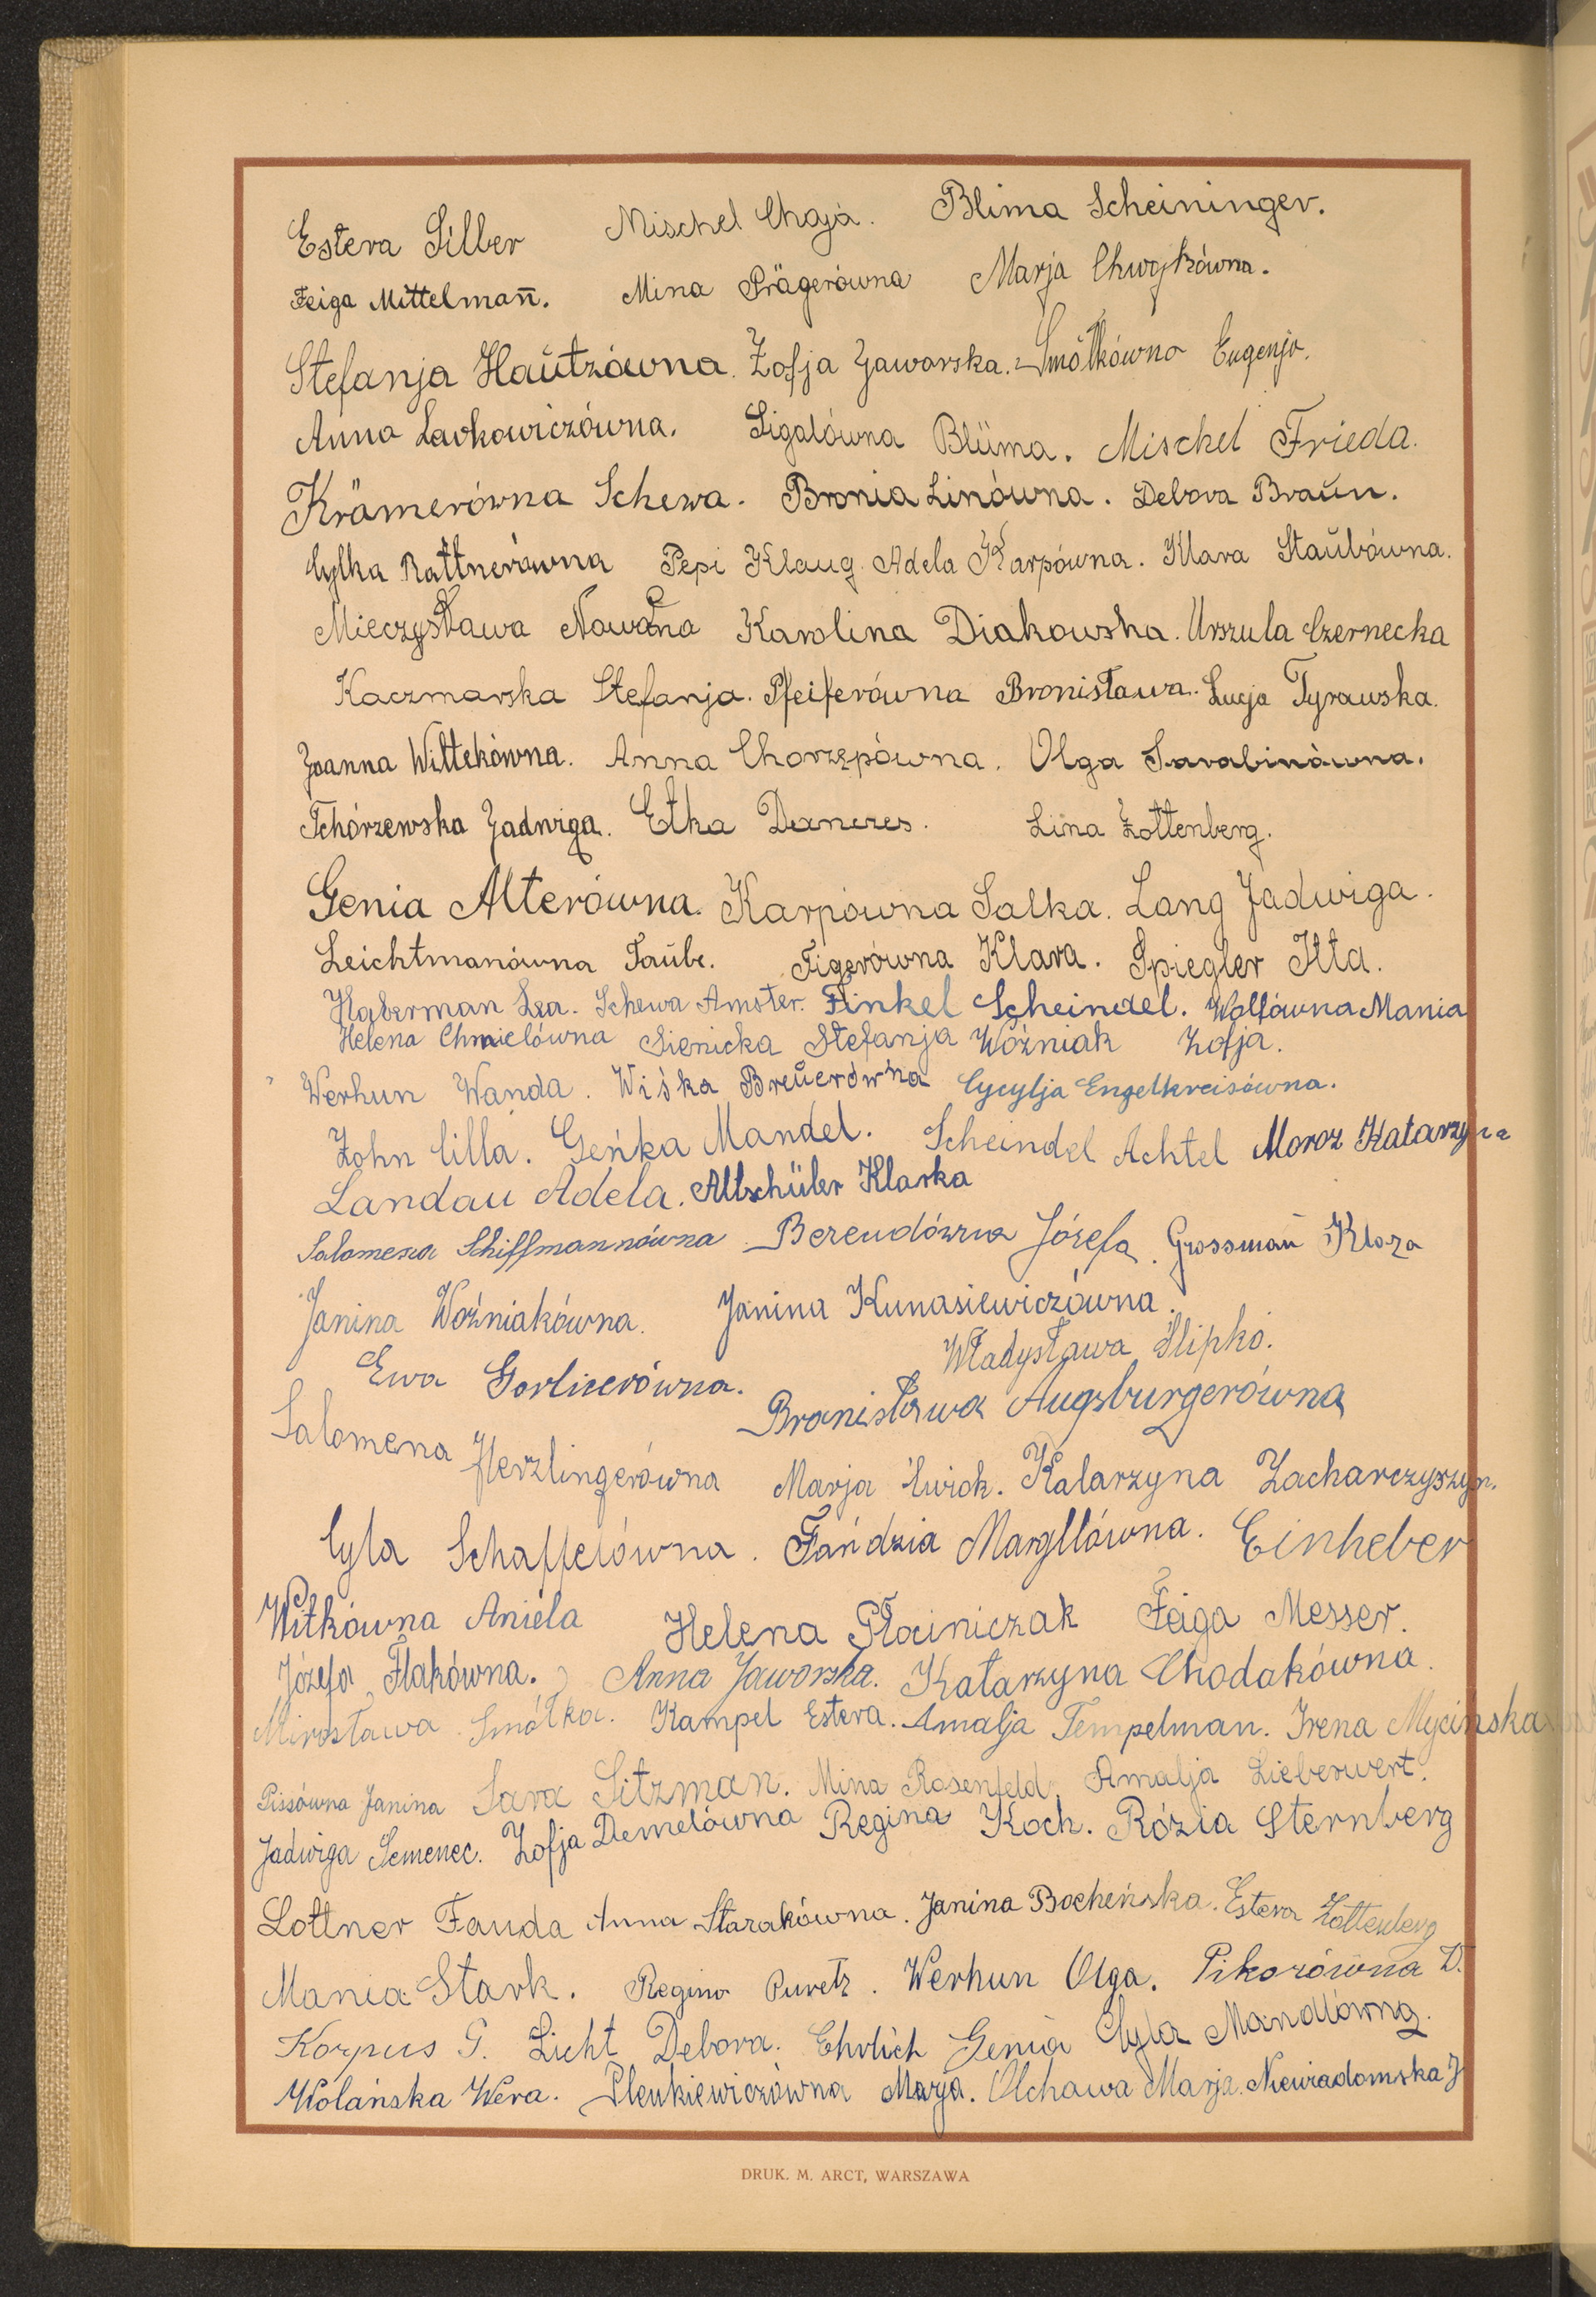 Estera Silber Mischel Chaja. Blima Scheininger.
Feiga Mittelmañ. Mina Prägerówna Marja Chwojkówna.
Stefanja Hautzówna. Zofja Jaworska. Smółkówna Eugenja.
Anna Lackowiczówna. Sigalówna Blüma. Mischel Frieda.
Krämerówna Schewa. Bronia Linówna. Debora Braŭn.
Cylka Rattnerówna Pepi Klaug. Adela Karpówna. Klara Staŭbówna.
Mieczysława Nowa Karolina Diakowska. Urszula Czernecka
Kaczmarska Stefanja. Pfeiferówna Bronisława. Łucja Tyrawska.
Joanna Wittekówna. Anna Chorzępówna. Olga Sarabinówna.
Tchórzewska Jadwiga. Etka Danczes. Lina Zottenberg.
Genia Alterówna. Karpówna Salka. Lang Jadwiga.
Leichtmanówna Taŭbe. Figerówna Klara. Spiegler Itta.
Haberman Lea. Schewa Amster. Finkel Scheindel. Wolfówna Mania
Helena Chmielówna Sienicka Stefanja Woźniak Zofja.
Werhun Wanda. Wiśka Breŭerówna Cycylja Engelkreisówna.
Zohn Cilla. Geńka Mandel. Scheindel Achtel Moroz Katarzyna
Landau Adela. Altschüler Klarka
Salomena Schiffmannówna Berendówna Józefa. Grossmañ Klara
Janina Woźniakówna. Janina Kunasiewiczówna.
Władysława Ślipko.
Ewa Gorlicerówna.
Bronisława Augsburgerówna
Salomena Herzlingerówna Marja Ćwiok. Katarzyna Zacharczyszyn.
Cyla Schaffelówna. Fańdzia Margllówna. Einheber
Witkówna Aniela Helena Płociniczak Feiga Messer.
Józefa Flakówna. Anna Jaworska. Katarzyna Chodakówna.
Mirosława Smółka. Kampel Estera. Amalja Tempelman. Irena Mycińska
Pissówna Janina Sara Sitzman. Mina Rosenfeld. Amalja Lieberwert.
Jadwiga Semenec. Zofja Demelówna Regina Koch. Rózia Sternberg
Lottner Fanda Anna Starakówna. Janina Bocheńska. Estera Zottenberg
Mania Stark. Regina Puretz. Werhun Olga. Pikorówna D.
Korpus G. Licht Debora. Ehrlich Genia Cyla Mandlówna.
Wolańska Wera. Plenkiewiczówna Marja. Olchawa Marja. Niewiadomska J
DRUK. M. ARCT, WARSZAWA